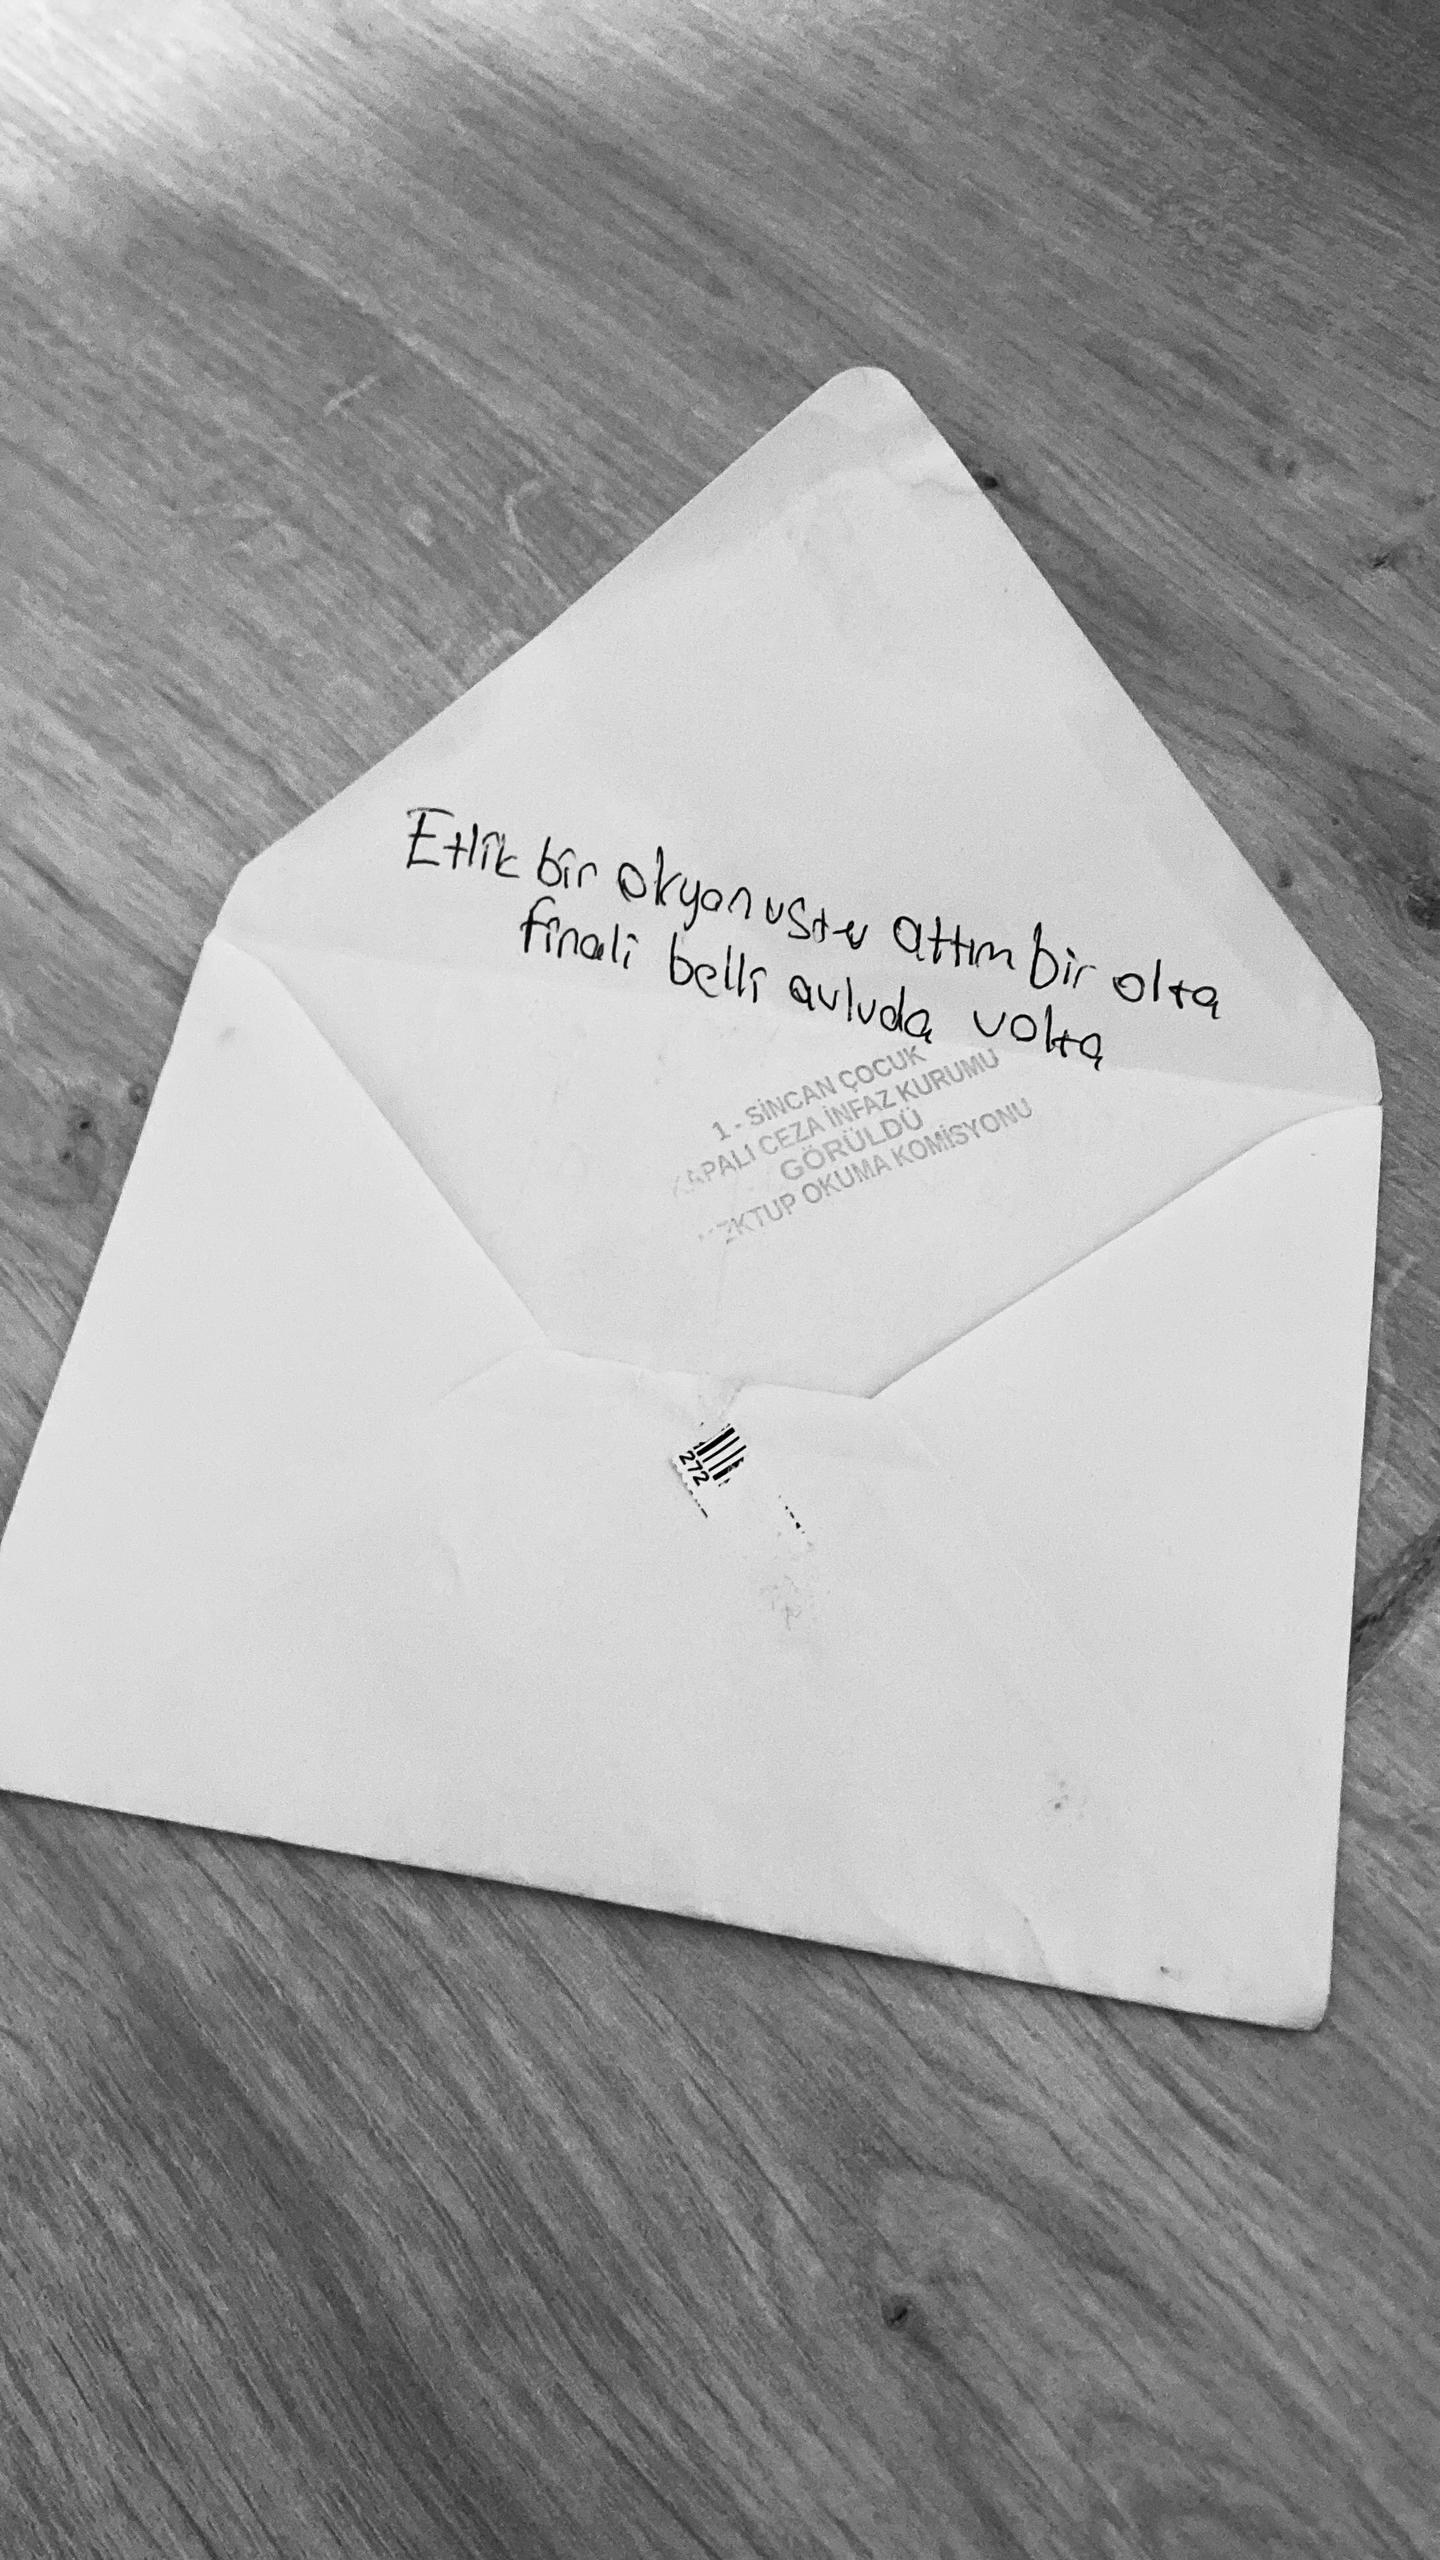 Etlik bir okyanustu attım bir olta
finali belli avluda volta
1 - SİNCAN ÇOCUK
KAPALI CEZA İNFAZ KURUMU
GÖRÜLDÜ
MEKTUP OKUMA KOMİSYONU
272